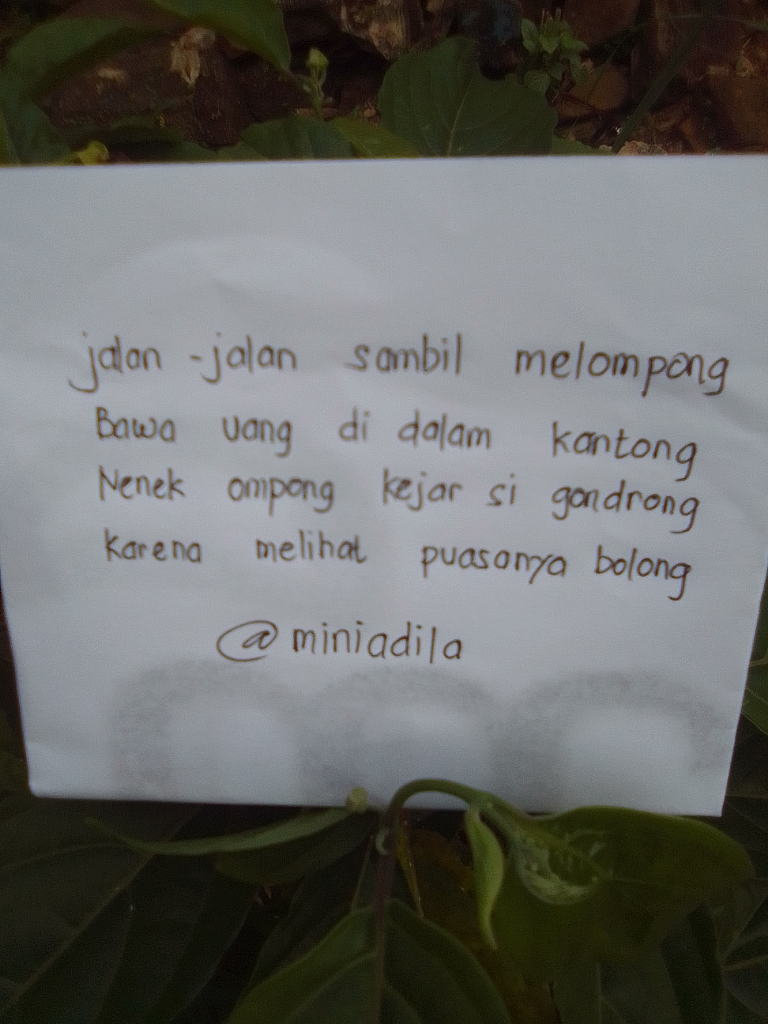 jalan -jalan sambil melompong
Bawa uang di dalam kantong
Nenek ompong kejar si gondrong
Karena melihat puasanya bolong
@miniadila